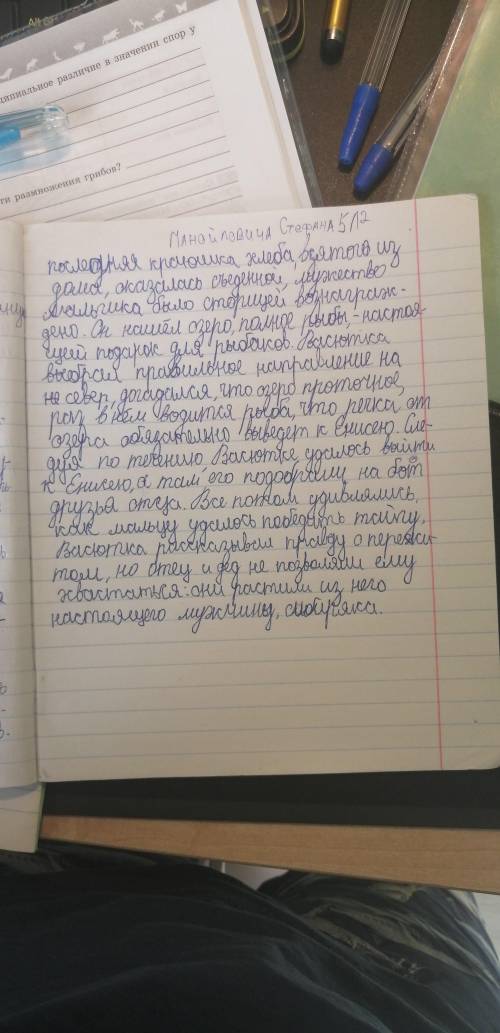 Alt
ципиальное различие в значении спор у
ти размножения грибов?
Манойловича Стефана 5Л2
последняя крошка хлеба, взятого из
дома, оказалась съеденной, мужество
мальчика было сторицей вознаграж-
дено. Он нашёл озеро, полное рыбы, - настоя-
щий подарок для рыбаков. Васютка
выбрал правильное направление на
не север, догадался, что озеро проточное,
раз в нём водится рыба, что речка от
озера обязательно выведет к Енисею. Сле-
дуя по течению Васютке удалось выйти
к Енисею, а там его подобрали на бот
друзья отца. Все потом удивлялись,
как мальцу удалось победить тайгу,
Васютка рассказывал правду о пережи-
том, но отец и дед не позволяли ему
хвастаться: они растили из него
настоящего мужчину, сибиряка.